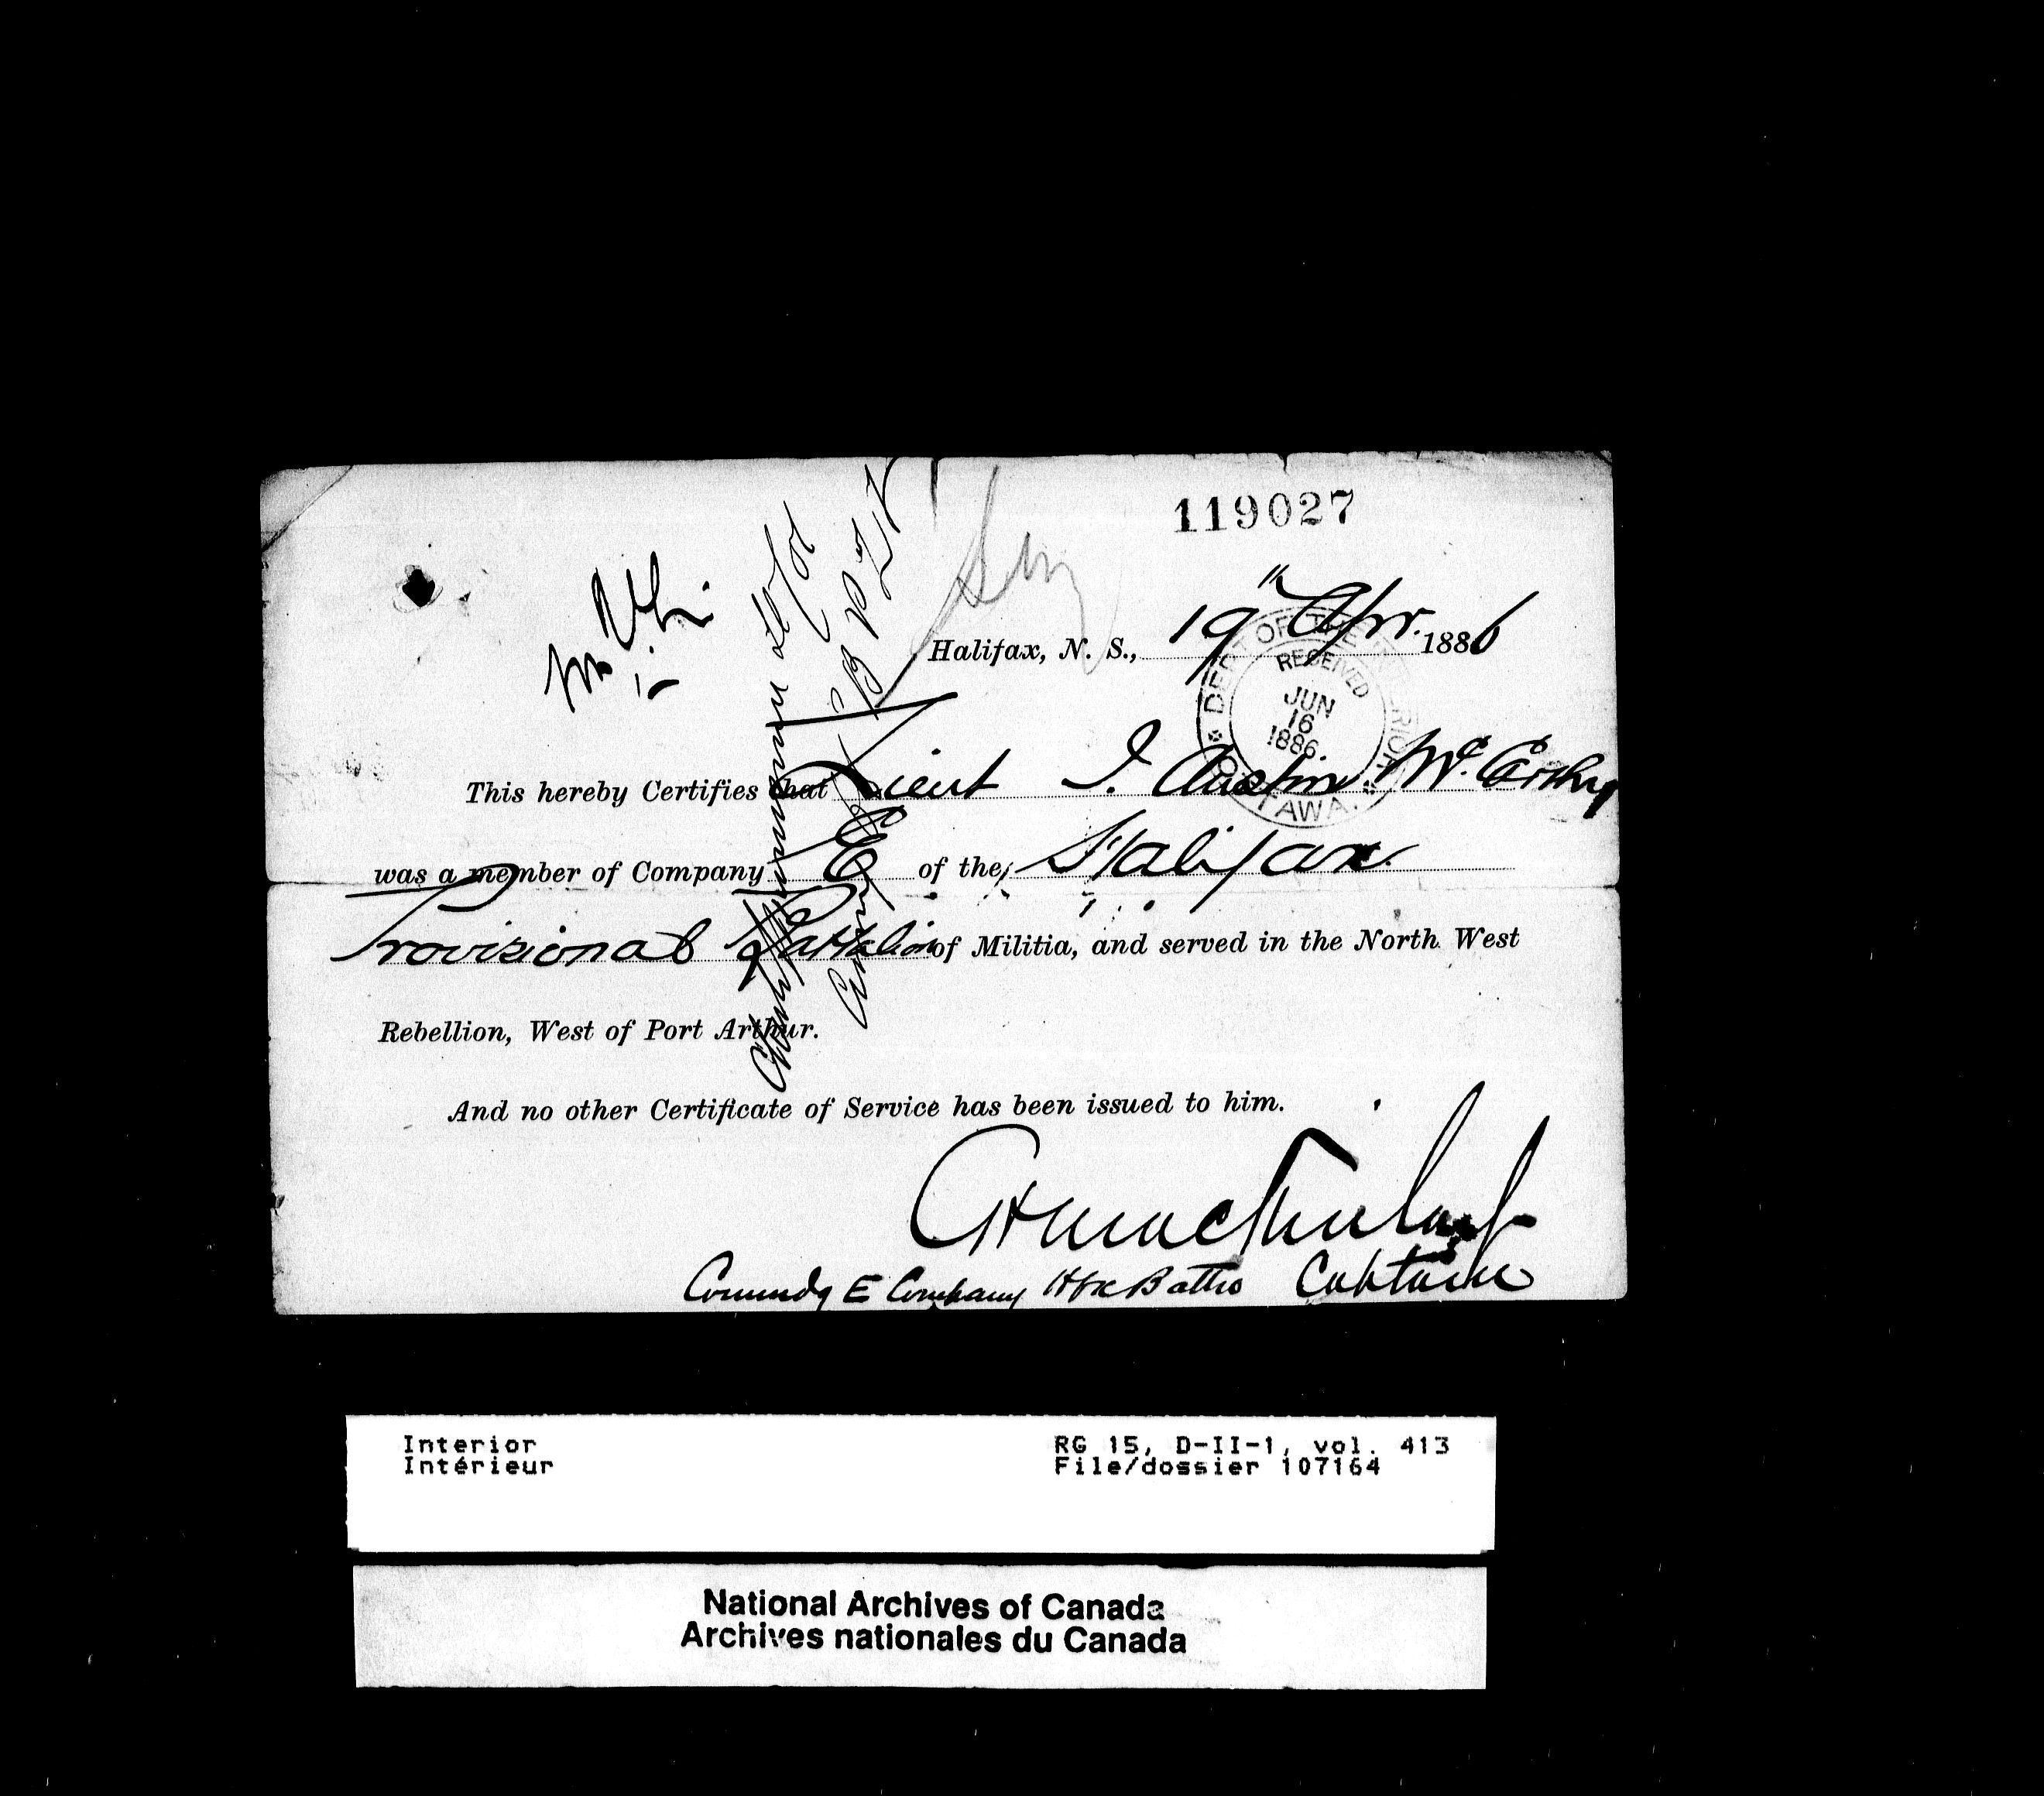 119027
Halifax, N. S., 19th Apr. 1886
DEPT OF THE INTERIOR
RECEIVED
JUN
16
1886.
OTTAWA.
This hereby Certifies that Lieut J. Austin McCarthy
was a member of Company E of the Halifax
Provisional Battalion of Militia, and served in the North West
Rebellion, West of Port Arthur.
And no other Certificate of Service has been issued to him.
Captain
Commdg E Company Hfx Battn
Interior
Intérieur
RG 15, D-II-1, vol. 413
File/dossier 107164
National Archives of Canada
Archives nationales du Canada